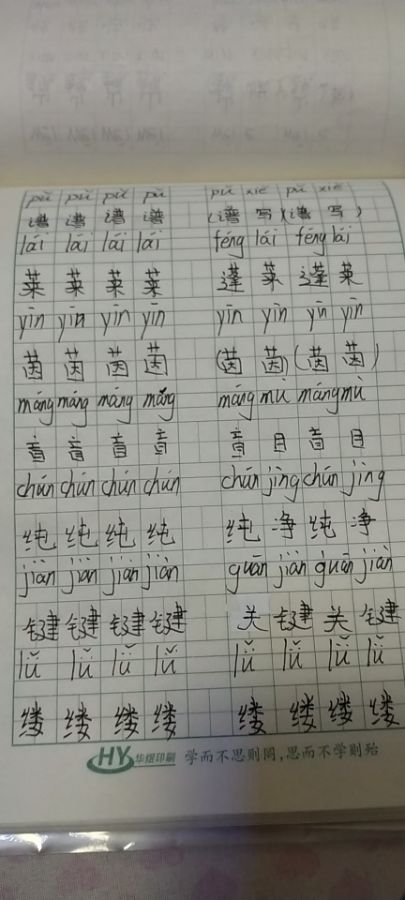 pǔ pǔ pǔ pǔ pǔ xiě pǔ xiě
谱 谱 谱 谱 (谱 写)(谱 写)
lái lái lái lái féng lái féng lái
莱 莱 莱 莱 蓬 莱 蓬 莱
yīn yīn yīn yīn yīn yīn yīn yīn
茵 茵 茵 茵 (茵 茵)(茵 茵)
máng máng máng máng máng mù máng mù
chún chún chún chún chún jìng chún jìng
纯 纯 纯 纯 纯 净 纯 净
jiàn jiàn jiàn jiàn guān jiàn guān jiàn
键 键 键 键 关 键 关 键
lǚ lǚ lǚ lǚ lǚ lǚ lǚ lǚ
缕 缕 缕 缕 缕 缕 缕 缕
HY 华煜印刷 学而不思则罔,思而不学则殆